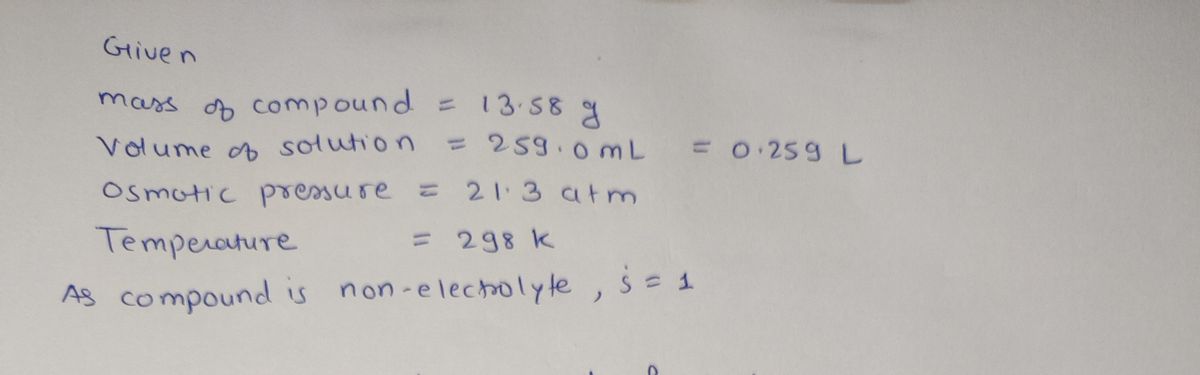 Given
mass of compound = 13.58 g
Volume of solution = 259.0 mL = 0.259 L
Osmotic pressure = 21.3 atm
Temperature = 298 K
As compound is non-electrolyte, i = 1